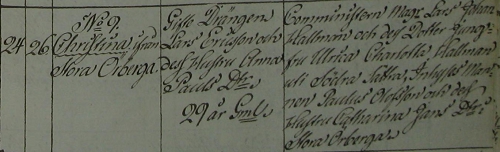 24 26 No 9. Christina ifrån Stora Örberga.
Gifte Drängen
Lars Ericsson och
des Hustru Anna
Pauls Dtr.
29 år Gml.
Communistern Mag. Lars Johan
Hallman och des Dotter Jung-
fru Ulrica Charlotta Hallman
uti Södra Sätra, Inhyses Man-
nen Paulus Olofsson och des
Hustru Catharina Jans Dtr i
Stora Örberga.